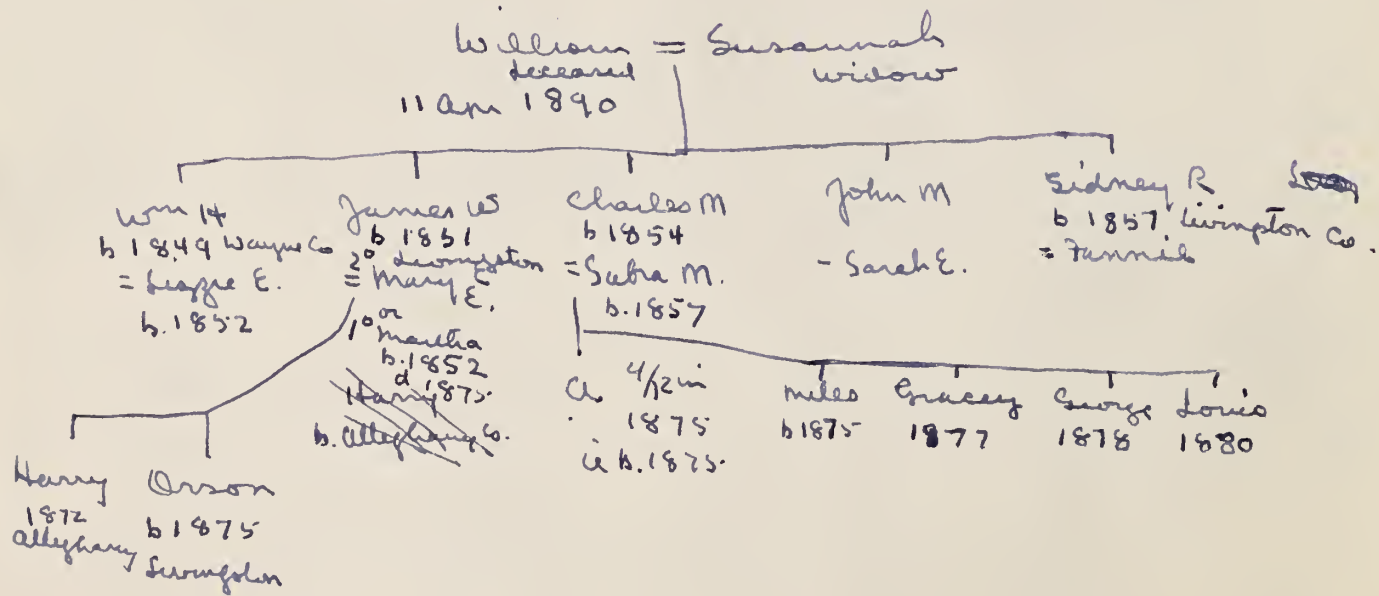 William = Susannah
deceased widow
11 Apr 1890
Wm H
b 1849 Wayne Co
= Lizzie E.
b. 1852
James W
b 1851
Livingston
2° = Mary E
E.
1° or
Martha
b. 1852
d 1875.
Harry
b. Alleghany Co.
Charles M
b 1854
= Sabra M.
b. 1857
John M
- Sarah E.
Sidney R
b 1857, Livington Co.
= Fannie
Harry
1872
Alleghany
Orson
b 1875
Livingston
Ch. 4/12 in
1875
ie b. 1875.
Miles
b 1875
Gracey
1877
George
1878
Louis
1880